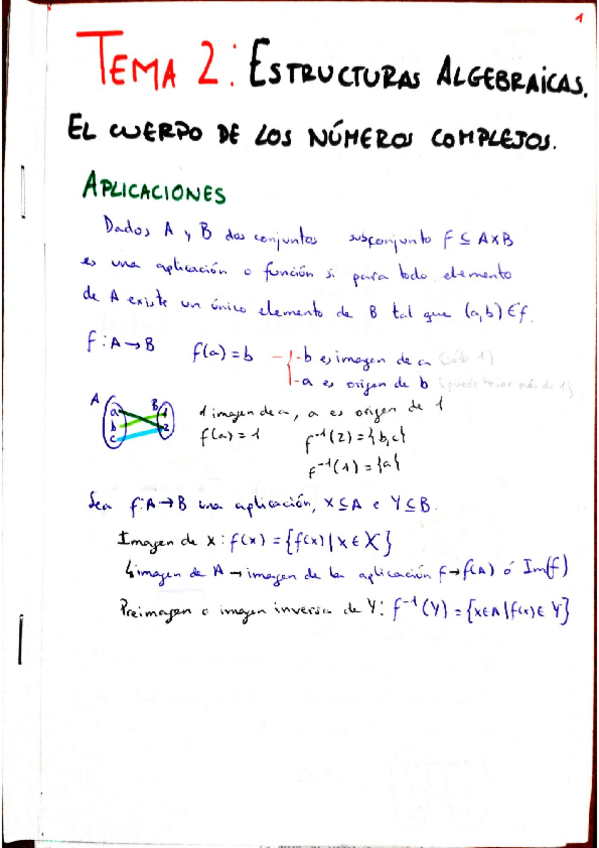 1
TEMA 2: ESTRUCTURAS ALGEBRAICAS.
EL CUERPO DE LOS NÚMEROS COMPLEJOS.
APLICACIONES
Dados A y B dos conjuntos subconjunto f ⊆ A×B
es una aplicación o función si para todo elemento
de A existe un único elemento de B tal que (a,b) ∈ f.
f: A → B f(a) = b - b es imagen de a (sólo 1)
- a es origen de b (puede tener más de 1)
A B
a 1
b 2
c
1 imagen de a, a es origen de 1
f(a) = 1 f⁻¹(2) = {b,c}
f⁻¹(1) = {a}
Sea f: A → B una aplicación, X ⊆ A e Y ⊆ B.
Imagen de X: f(x) = {f(x) | x ∈ X}
↳ imagen de A → imagen de la aplicación f → f(A) ó Im(f)
Preimagen o imagen inversa de Y: f⁻¹(Y) = {x∈A | f(x) ∈ Y}